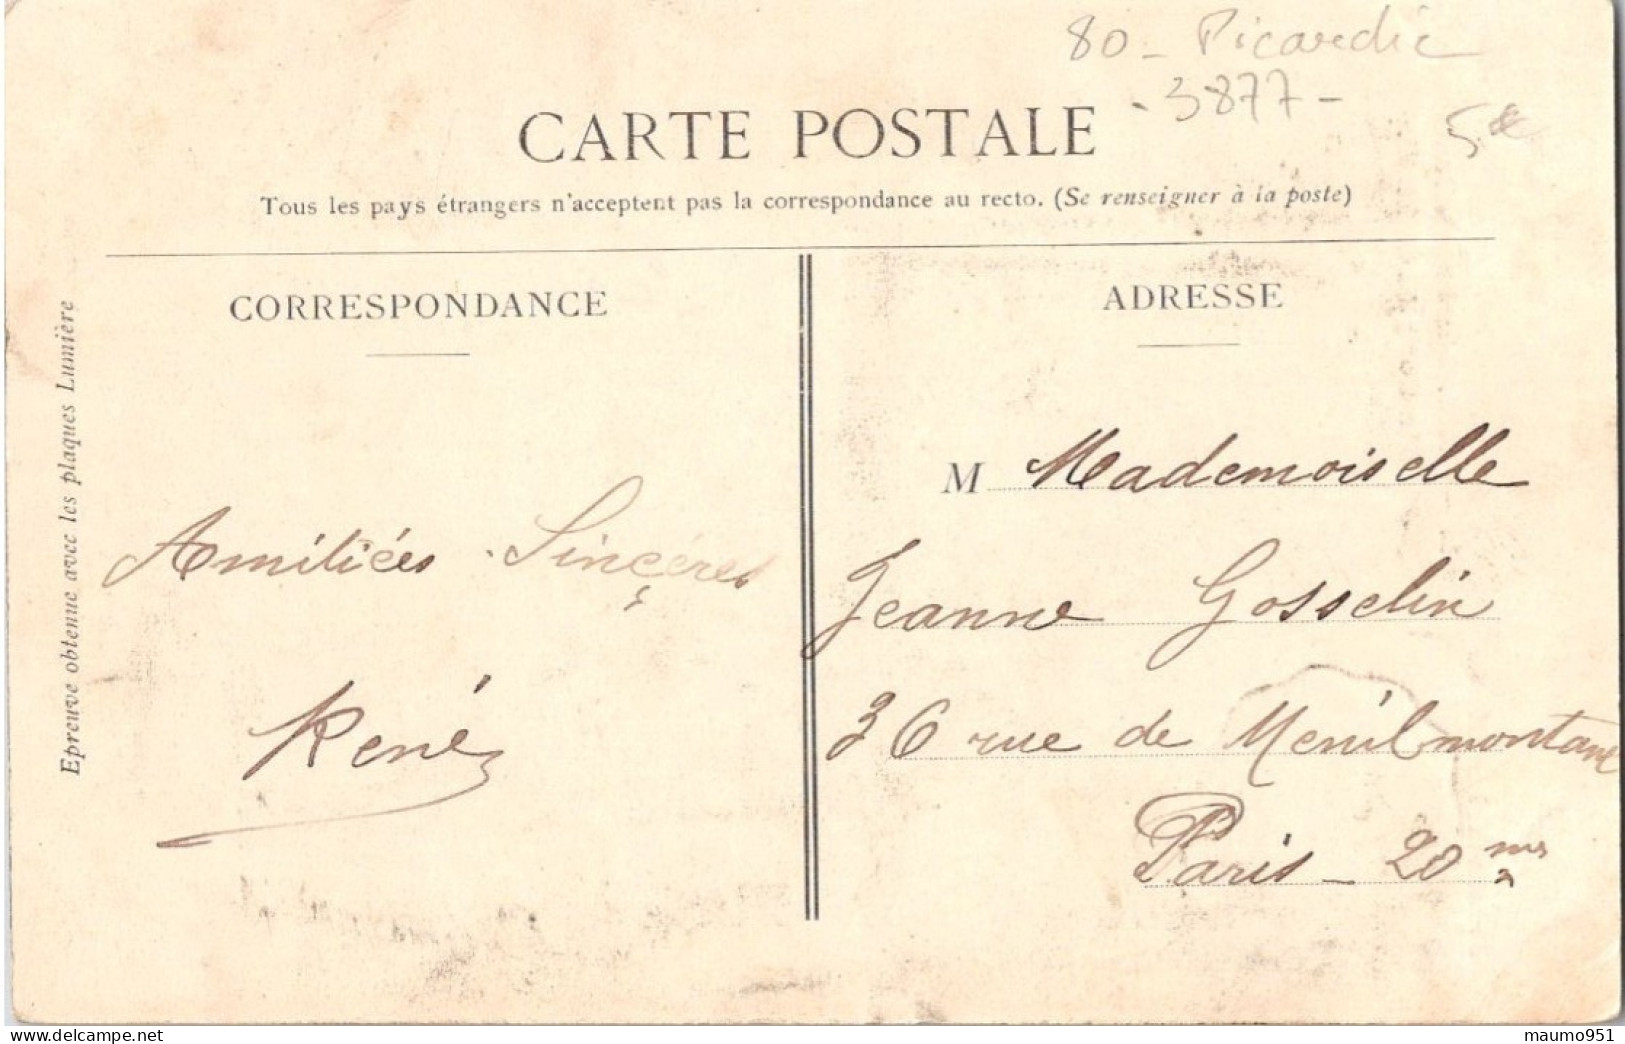 80 - Picardie
- 3877 -
5 €
CARTE POSTALE
Tous les pays étrangers n'acceptent pas la correspondance au recto. (Se renseigner à la poste)
CORRESPONDANCE
Amitiées Sinçéres
René
Epreuve obtenue avec les plaques Lumière
ADRESSE
M Mademoiselle
Jeanne Gosselin
36 rue de Menilmontant
Paris - 20 me
maumo951